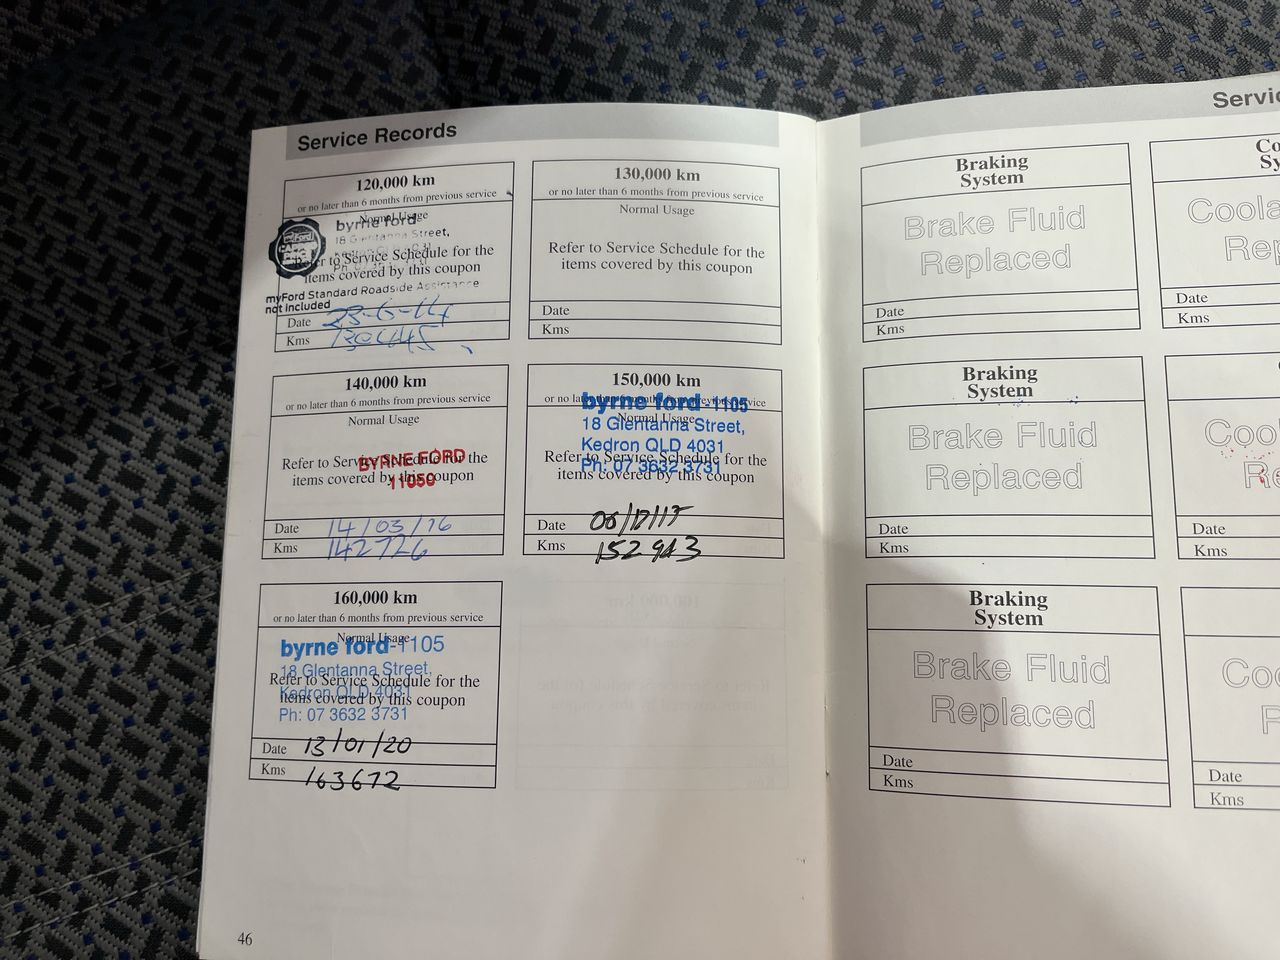 Service Records
120,000 km
or no later than 6 months from previous service
Normal Usage
byrne ford
18 Glentanna Street,
Refer to Service Schedule for the
items covered by this coupon
myFord Standard Roadside Assistance
not included
Date
Kms
130,000 km
or no later than 6 months from previous service
Normal Usage
Refer to Service Schedule for the
items covered by this coupon
Date
Kms
140,000 km
or no later than 6 months from previous service
Normal Usage
Refer to Service Schedule for the
items covered by this coupon
BYRNE FORD
Date 14/03/16
Kms 142726
150,000 km
or no later than 6 months from previous service
Normal Usage
byrne ford-1105
18 Glentanna Street,
Kedron QLD 4031
Ph: 07 3632 3731
Refer to Service Schedule for the
items covered by this coupon
Date
Kms 152943
160,000 km
or no later than 6 months from previous service
Normal Usage
byrne ford-1105
18 Glentanna Street,
Kedron QLD 4031
Ph: 07 3632 3731
Refer to Service Schedule for the
items covered by this coupon
Date 13/01/20
Kms 163672
46
Braking
System
Brake Fluid
Replaced
Date
Kms
Braking
System
Brake Fluid
Replaced
Date
Kms
Braking
System
Brake Fluid
Replaced
Date
Kms
Servic
Co
Sy
Coola
Rep
Date
Kms
Cool
Re
Date
Kms
Coo
Date
Kms